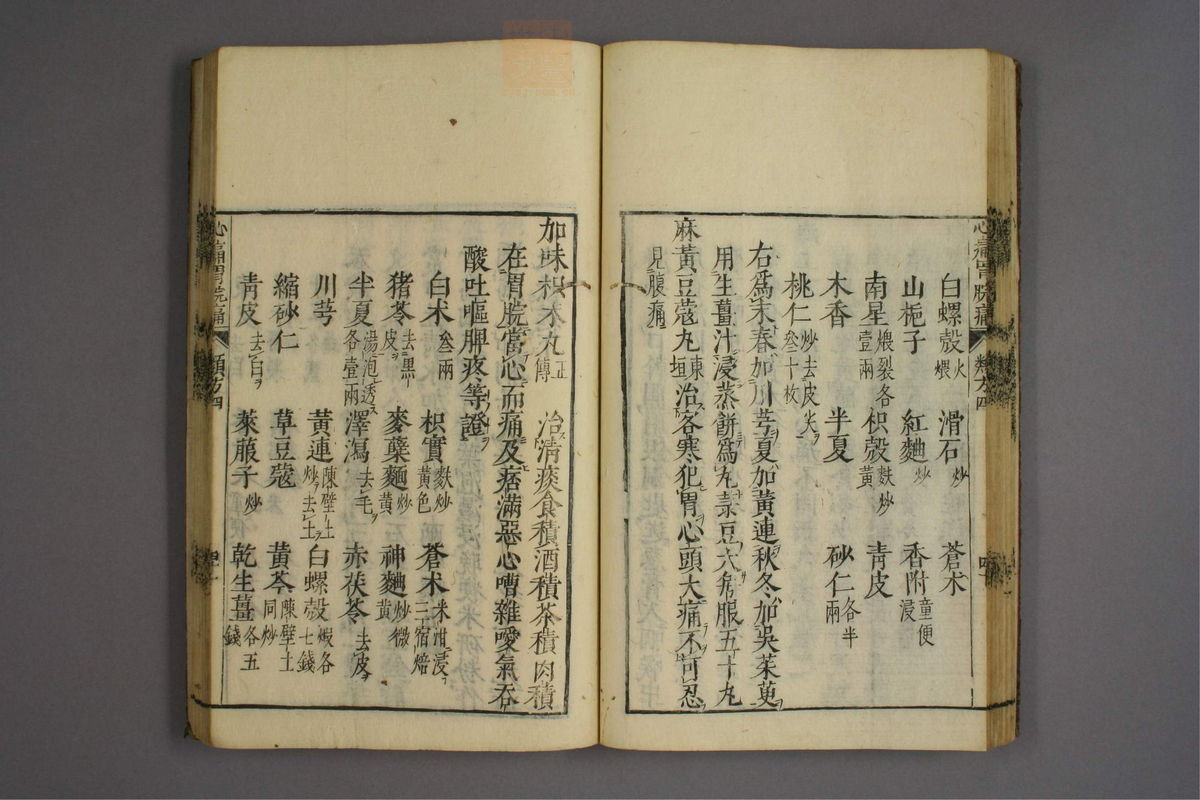 心痛胃脘痛 類方四
白螺殻火煨 滑石炒 蒼朮
山梔子 紅麯炒 香附童便浸
南星煨裂各壹兩 枳殻麩炒黃 青皮
木香 半夏 砂仁各半兩
桃仁炒去皮尖ヲ叁十枚
右爲末春加川芎夏加黃連秋冬加吳茱萸
用生薑汁浸蒸餅爲丸菉豆大每服五十丸
麻黃豆蔻丸東垣治客寒犯胃心頭大痛不可忍
見腹痛
加味枳朮丸正傳 治淸痰食積酒積茶積肉積
在胃脘當心而痛及痞滿惡心嘈雜噯氣吞
酸吐嘔脾疼等證
白朮叁兩 枳實麩炒黃色 蒼朮米泔浸三宿焙
猪苓去黑皮 麥蘗麵炒黃 神麯炒微黃
半夏湯泡透各壹兩 澤瀉去毛 赤茯苓去皮
川芎 黃連陳壁土炒去土 白螺殻煆各七錢
縮砂仁 草豆蔻 黃芩陳壁土同炒
青皮去白ヲ 萊菔子炒 乾生薑各五錢
心痛胃脘痛 類方四